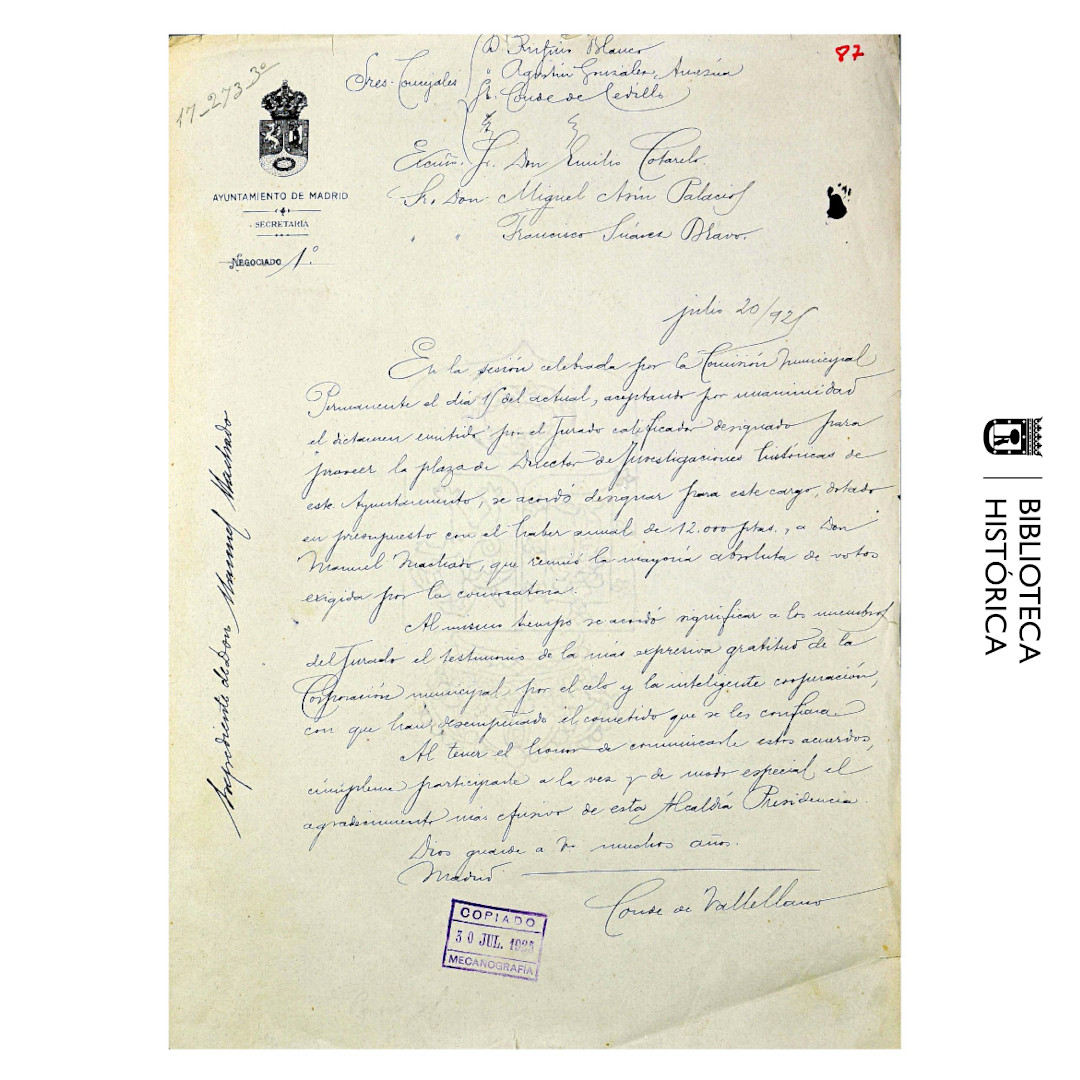 87
17-273-3º
Sres. Concejales
D. Rufino Blanco
" Agustín González Amezúa
Sr. Conde de Cedillo
Excmo. Sr. Don Emilio Cotarelo.
Sr. Don Miguel Asín Palacios
" " Francisco Suárez Bravo.
AYUNTAMIENTO DE MADRID
SECRETARÍA
NEGOCIADO 1.º
julio 20/925
En la sesión celebrada por la Comisión Municipal
Permanente el día 15 del actual, aceptando por unanimidad
el dictamen emitido por el Jurado calificador designado para
proveer la plaza de Director de Investigaciones históricas de
este Ayuntamiento, se acordó designar para este cargo, dotado
en presupuesto con el haber anual de 12.000 ptas., a Don
Manuel Machado, que reunió la mayoría absoluta de votos
exigida por la convocatoria.
Al mismo tiempo se acordó significar a los miembros
del Jurado el testimonio de la más expresiva gratitud de la
Corporación municipal por el celo y la inteligente cooperación,
con que han desempeñado el cometido que se les confiara.
Al tener el honor de comunicarle estos acuerdos,
cúmpleme participarle a la vez y de modo especial el
agradecimiento más efusivo de esta Alcaldía Presidencia.
Dios guarde a V. muchos años.
Madrid
Conde de Vallellano
Expediente de Don Manuel Machado
COPIADO
30 JUL. 1925
MECANOGRAFÍA
BIBLIOTECA
HISTÓRICA